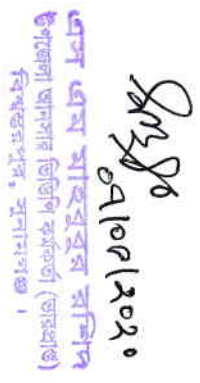 ০৭/০৫/২০২০
এস এম মাহবুবুর রশিদ
উপজেলা আনসার ভিডিপি কর্মকর্তা (ভারপ্রাপ্ত)
বিশ্বম্ভরপুর, সুনামগঞ্জ ।